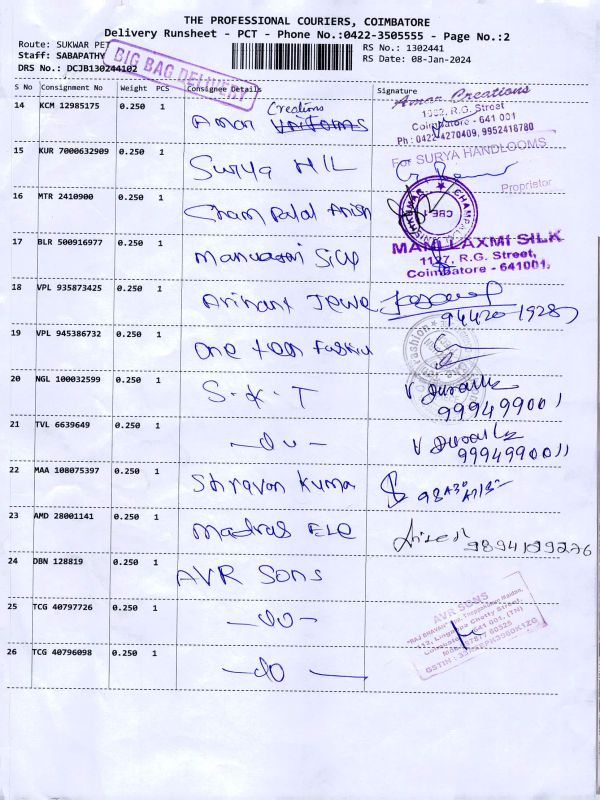 THE PROFESSIONAL COURIERS, COIMBATORE
Delivery Runsheet - PCT - Phone No.:0422-3505555 - Page No.:2
Route: SUKWAR PET
RS No.: 1302441
Staff: SABAPATHY
RS Date: 08-Jan-2024
DRS No.: DCJB130244102
BIG BAG DELIVERY
S No Consignment No Weight PCS Consignee Details Signature
14 KCM 12985175 0.250 1 Aman Creations
Aman Creations
1082, R.G. Street
Coimbatore - 641 001
Ph : 0422-4270409, 9952418780
15 KUR 7000632909 0.250 1 Surya H/L
For SURYA HANDLOOMS
Proprietor
16 MTR 2410900 0.250 1 Cham Palal Anish
CBE-1
17 BLR 500916977 0.250 1
MANI LAXMI SILK
1127, R.G. Street,
Coimbatore - 641001.
18 VPL 935873425 0.250 1 Arihant Jewe
94420 19287
19 VPL 945386732 0.250 1 One ten
20 NGL 100032599 0.250 1 S.K.T
9994990011
21 TVL 6639649 0.250 1 -do-
9994990011
22 MAA 108075397 0.250 1 Shravan Kuma
23 AMD 28001141 0.250 1 Madras Ele
9894199276
24 DBN 128819 0.250 1 AVR SONS
25 TCG 40797726 0.250 1 -do-
AVR SONS
26 TCG 40796098 0.250 1 -do-